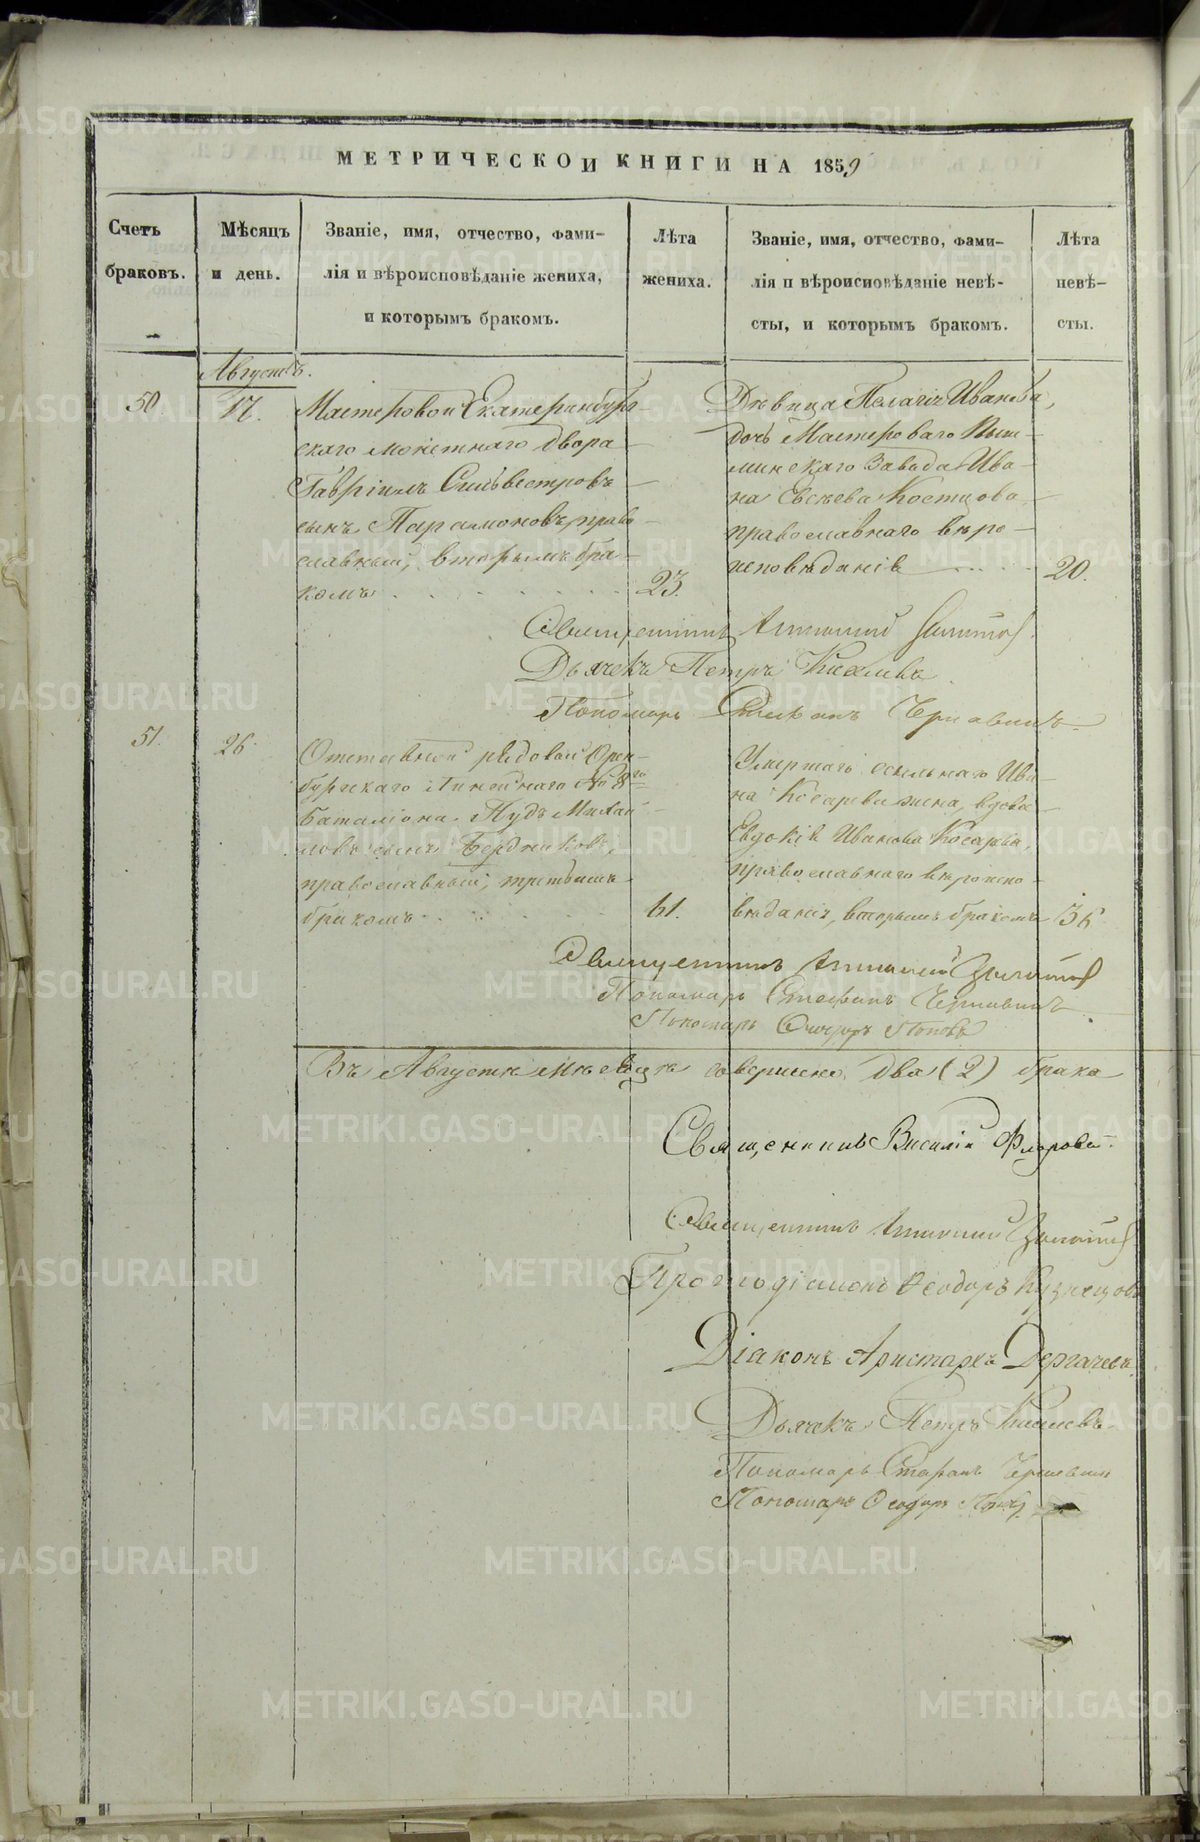 МЕТРИЧЕСКОЙ КНИГИ НА 1859
Счетъ браковъ.
Мѣсяцъ и день.
Званіе, имя, отчество, фами-
лія и вѣроисповѣданіе жениха,
и которымъ бракомъ.
Лѣта жениха.
Званіе, имя, отчество, фами-
лія и вѣроисповѣданіе невѣ-
сты, и которымъ бракомъ.
Лѣта невѣ-
сты.
Августъ.
50. 17.
Мастеровой Екатеринбург-
скаго монетнаго двора
Гавріилъ Сильвестровъ
сынъ Парамоновъ, право-
славный, вторымъ бра-
комъ 23.
Дѣвица Пелагія Иванова,
дочь Мастероваго Пыш-
минскаго Завода Ива-
на Евсѣева Костцова
православнаго вѣро-
исповѣданія 20.
Священникъ Антоній
Дьячекъ Петръ Киселевъ
Пономарь Стефанъ Чернавинъ
51. 26.
Отставной рядовой Орен-
бургскаго Линейнаго № 8го
баталіона Нудъ Михай-
ловъ сынъ Бердниковъ,
православный, третьимъ
бракомъ 61.
Умершаго ссыльнаго Ива-
на Косарева жена, вдова
Евдокія Иванова Косарева,
православнаго вѣроиспо-
вѣданія, вторымъ бракомъ 36
Священникъ Антоній
Пономарь Стефанъ Чернавинъ
Пономарь Ѳеодоръ Поповъ
Въ Августѣ мѣсяцѣ совершено два (2) брака
Священникъ Василій Флоровскій.
Священникъ Антоній
Протодіаконъ Ѳеодоръ Кузнецовъ
Діаконъ Аристархъ Дергачевъ
Дьячекъ Петръ Киселевъ
Пономарь Стефанъ Чернавинъ
Пономарь Ѳеодоръ Поповъ
METRIKI.GASO-URAL.RU